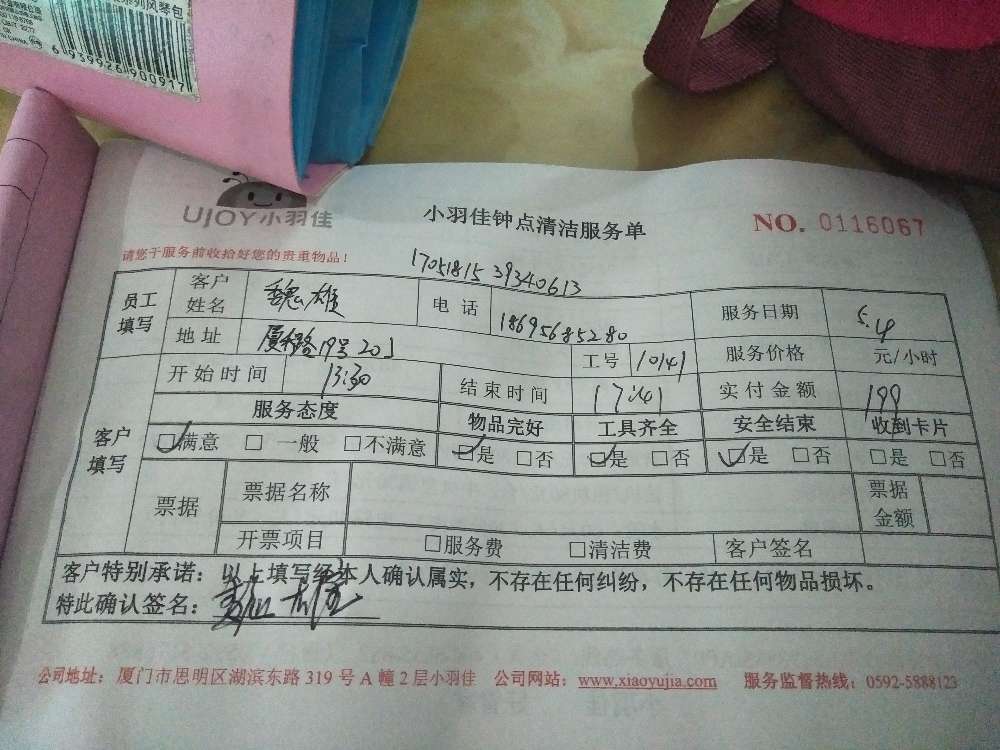 系列风琴包
6 939926 900917
UJOY小羽佳
小羽佳钟点清洁服务单
NO. 0116067
请您于服务前收拾好您的贵重物品！
1705181539340613
员工填写 客户姓名 魏雄 电话 18695685280 服务日期 5.4
地址 厦禾路19号201 工号 10141 服务价格 元/小时
开始时间 13:30 结束时间 17:41 实付金额 199
客户填写 服务态度 物品完好 工具齐全 安全结束 收到卡片
☑满意 □一般 □不满意 ☑是 □否 ☑是 □否 ☑是 □否 □是 □否
票据 票据名称 票据金额
开票项目 □服务费 □清洁费 客户签名
客户特别承诺：以上填写经本人确认属实，不存在任何纠纷，不存在任何物品损坏。
特此确认签名：魏雄
公司地址：厦门市思明区湖滨东路 319 号 A 幢 2 层小羽佳 公司网站：www.xiaoyujia.com 服务监督热线：0592-5888123